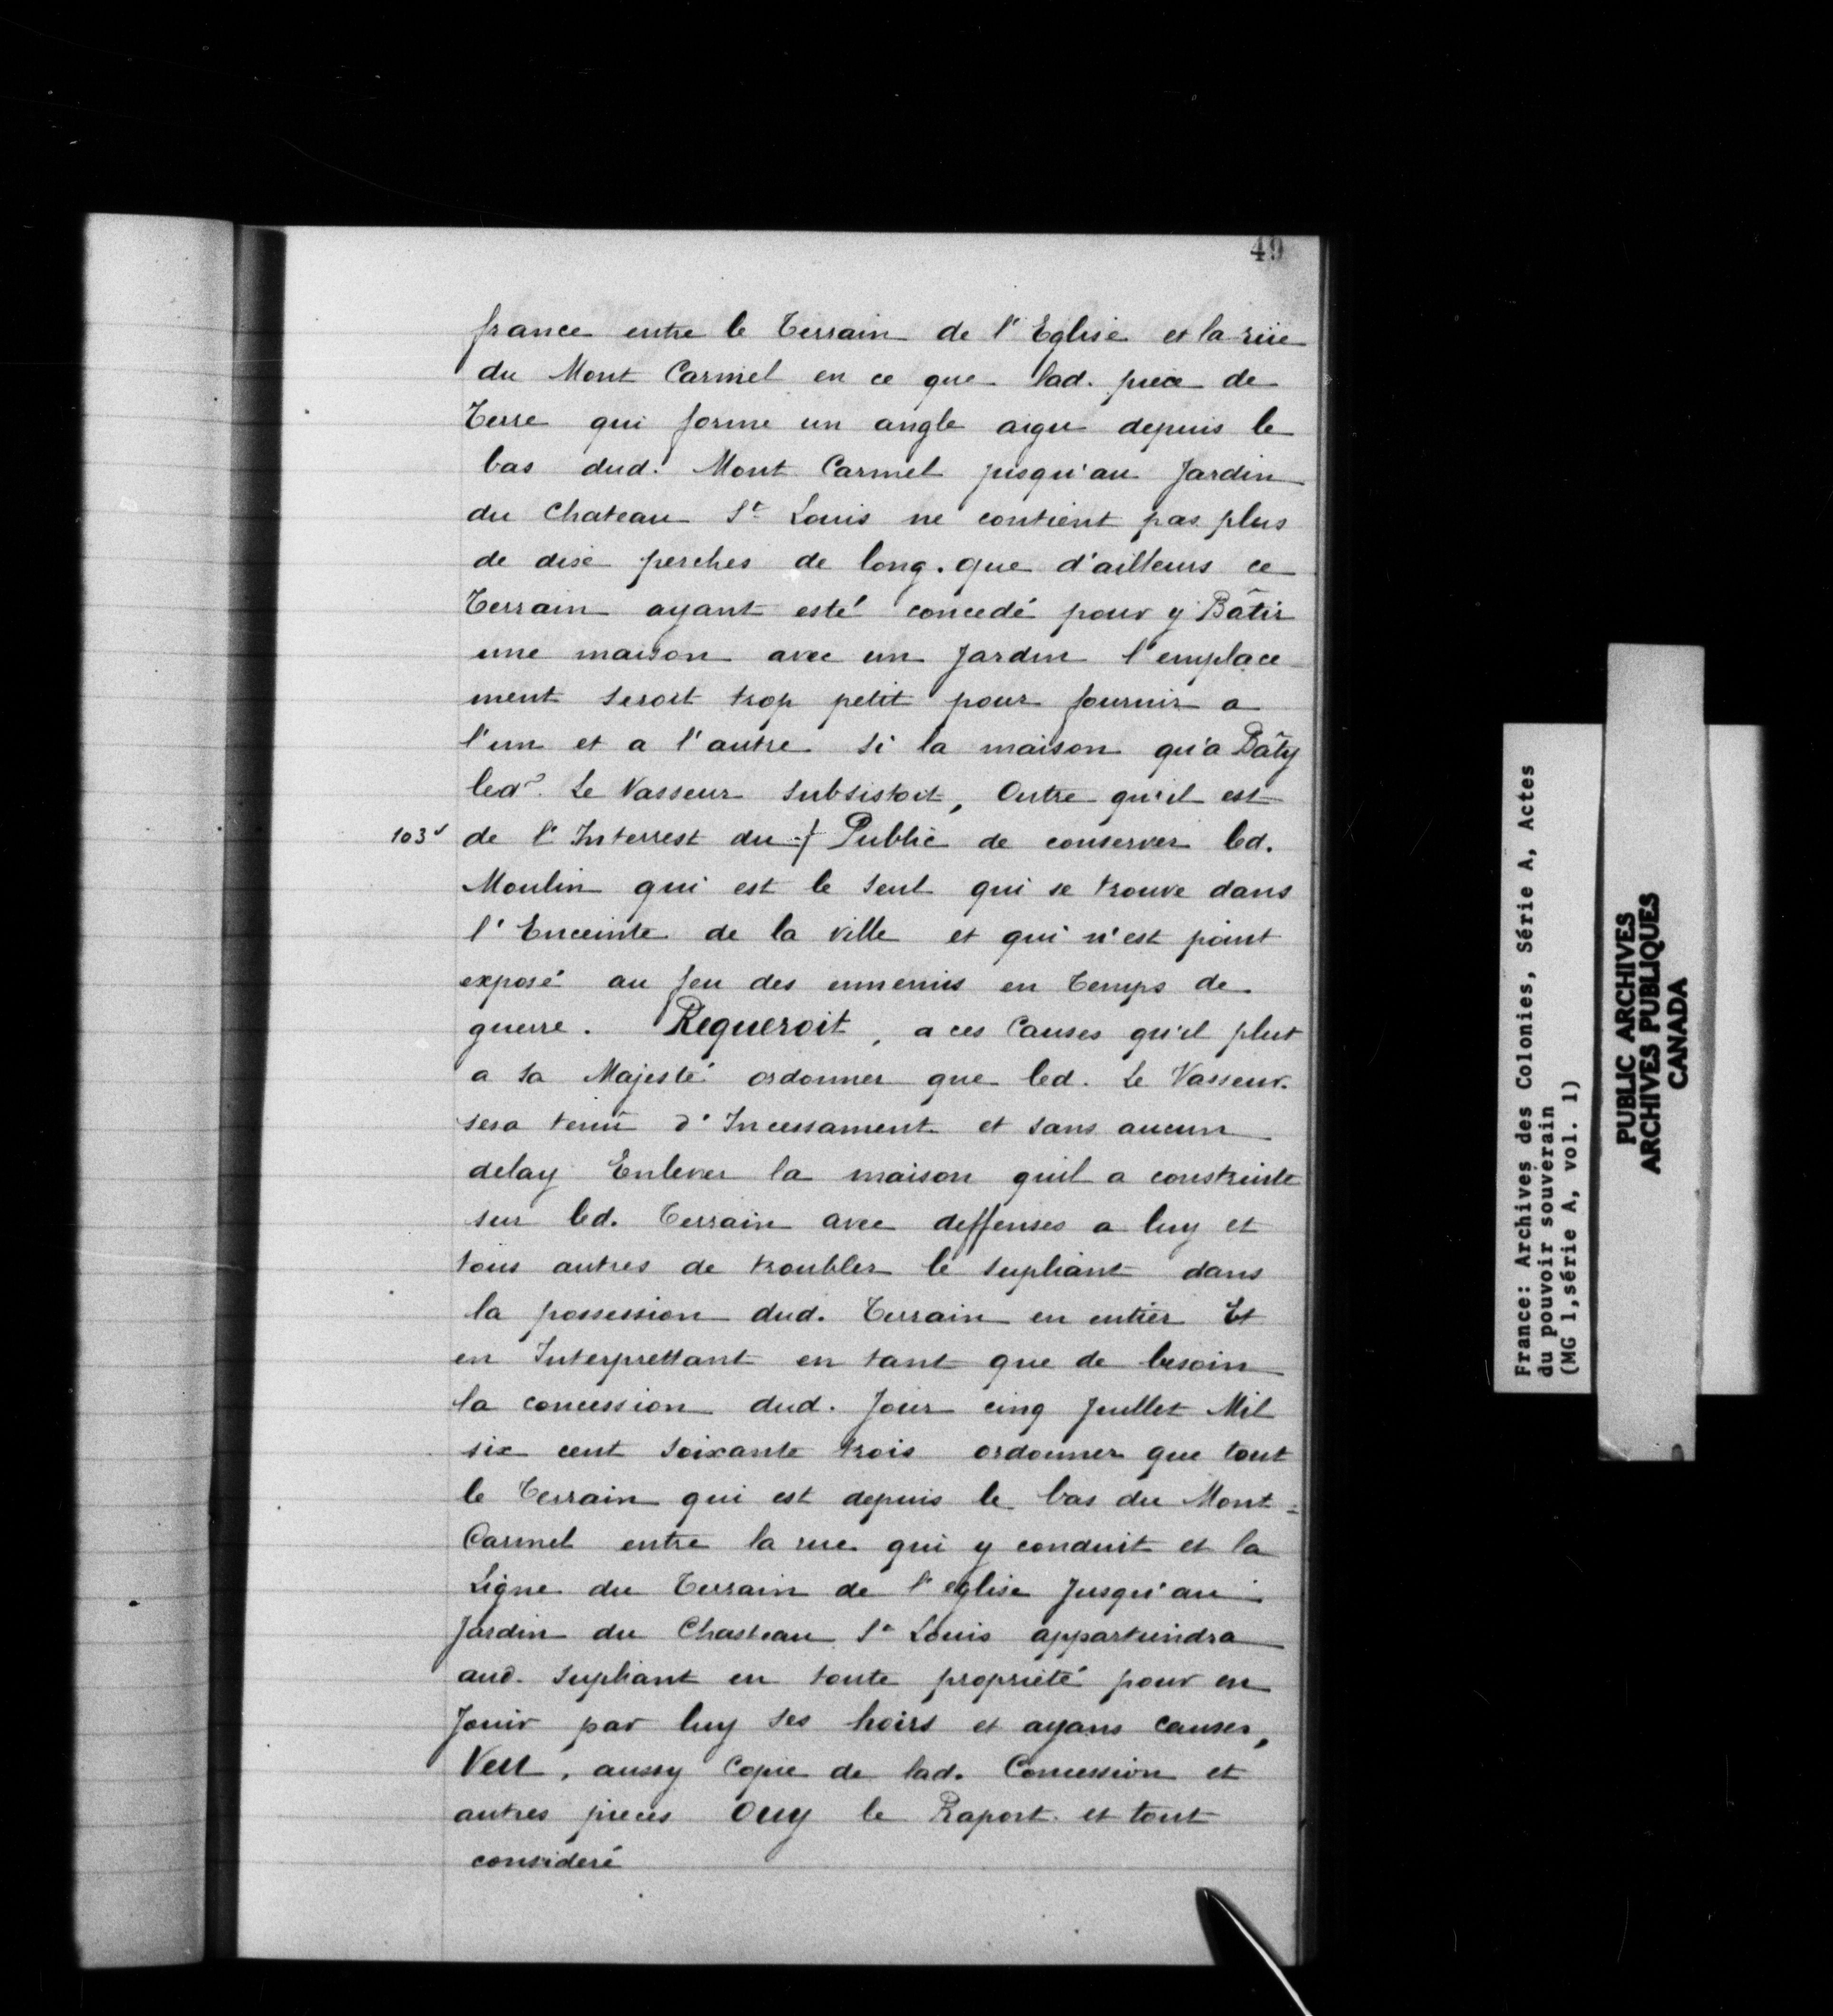 49
france entre le Terrain de l'Eglise et la rüe
du Mont Carmel en ce que lad. piece de
Terre qui forme un angle aigu depuis le
bas dud. Mont Carmel jusqu'au Jardin
du Chateau St Louis ne contient pas plus
de dix perches de long. que d'ailleurs ce
Terrain ayant esté concedé pour y Bâtir
une maison avec un Jardin l'emplace
ment seroit trop petit pour fournir a
l'un et a l'autre si la maison qu'a Bâty
led. Le Vasseur subsistoit, Outre qu'il est
103v de l'Interrest du Public de conserver led.
Moulin qui est le seul qui se trouve dans
l'Enceinte de la ville et qui n'est point
exposé au feu des ennemis en temps de
guerre. Requeroit, a ces Causes qu'il plut
a sa Majesté ordonner que led. Le Vasseur
sera tenu d'Incessament et sans aucun
delay Enlever la maison quil a construite
sur led. Terrain avec deffenses a luy et
tous autres de troubler le supliant dans
la possession dud. Terrain en entier Et
en Interprettant en tant que de besoin
la concession dud. Jour cinq Juillet Mil
six cent soixante trois ordonner que tout
le Terrain qui est depuis le bas du Mont=
Carmel entre la rue qui y conduit et la
Ligne du Terrain de l'eglise Jusqu'au
Jardin du Chasteau St Louis appartiendra
aud. supliant en toute propriété pour en
Jouir par luy ses hoirs et ayans causes,
Veu, aussy Copie de lad. Concession et
autres pieces Ouy le Raport et tout
consideré
France: Archives des Colonies, Série A, Actes
du pouvoir souverain
(MG 1,série A, vol. 1)
PUBLIC ARCHIVES
ARCHIVES PUBLIQUES
CANADA